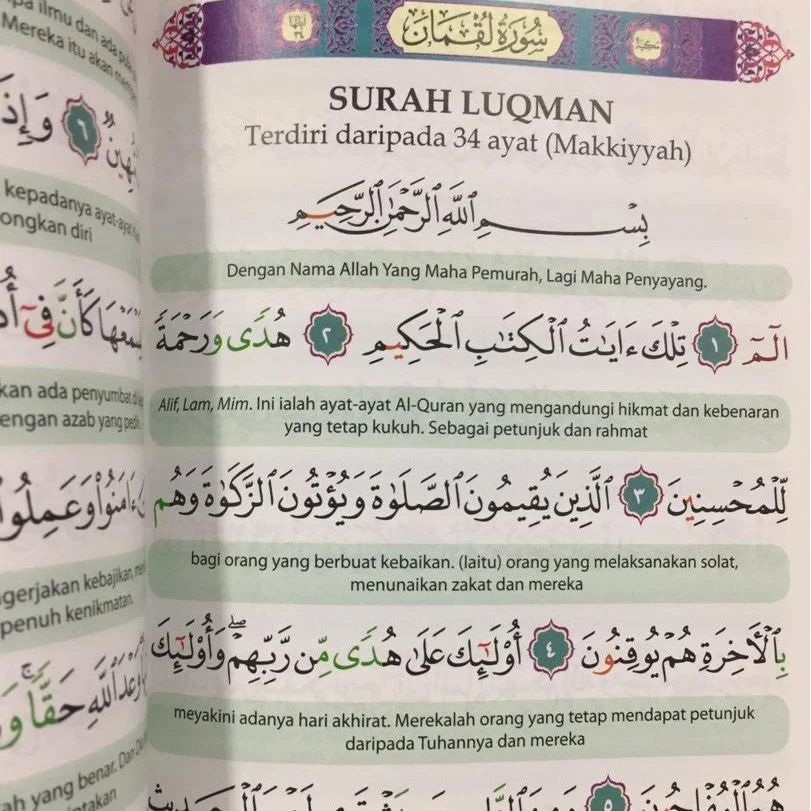 سُورَةُ لُقْمَانَ
SURAH LUQMAN
Terdiri daripada 34 ayat (Makkiyyah)
بِسْمِ ٱللَّهِ ٱلرَّحْمَٰنِ ٱلرَّحِيمِ
Dengan Nama Allah Yang Maha Pemurah, Lagi Maha Penyayang.
الٓمٓ ١ تِلْكَ ءَايَٰتُ ٱلْكِتَٰبِ ٱلْحَكِيمِ ٢ هُدًى وَرَحْمَةً
Alif, Lam, Mim. Ini ialah ayat-ayat Al-Quran yang mengandungi hikmat dan kebenaran
yang tetap kukuh. Sebagai petunjuk dan rahmat
لِّلْمُحْسِنِينَ ٣ ٱلَّذِينَ يُقِيمُونَ ٱلصَّلَوٰةَ وَيُؤْتُونَ ٱلزَّكَوٰةَ وَهُم
bagi orang yang berbuat kebaikan. (Iaitu) orang yang melaksanakan solat,
menunaikan zakat dan mereka
بِٱلْأَخِرَةِ هُمْ يُوقِنُونَ ٤ أُو۟لَٰٓئِكَ عَلَىٰ هُدًى مِّن رَّبِّهِمْ ۖ وَأُو۟لَٰٓئِكَ
meyakini adanya hari akhirat. Merekalah orang yang tetap mendapat petunjuk
daripada Tuhannya dan mereka
هُمُ ٱلْمُفْلِحُونَ ٥ وَمِنَ ٱلنَّاسِ مَن يَشْتَرِى لَهْوَ ٱلْحَدِيثِ
ilmu dan ada
Mereka itu akan
٦ وَإِذَا
kepadanya ayat-ayat
ongkan diri
يَسْمَعْهَا كَأَنَّ فِىٓ
kan ada penyumbat
engan azab yang pedih
ءَامَنُوا۟ وَعَمِلُوا۟
ngerjakan kebajikan,
penuh kenikmatan.
وَعْدَ ٱللَّهِ حَقًّا ۚ
ah yang benar. Dan